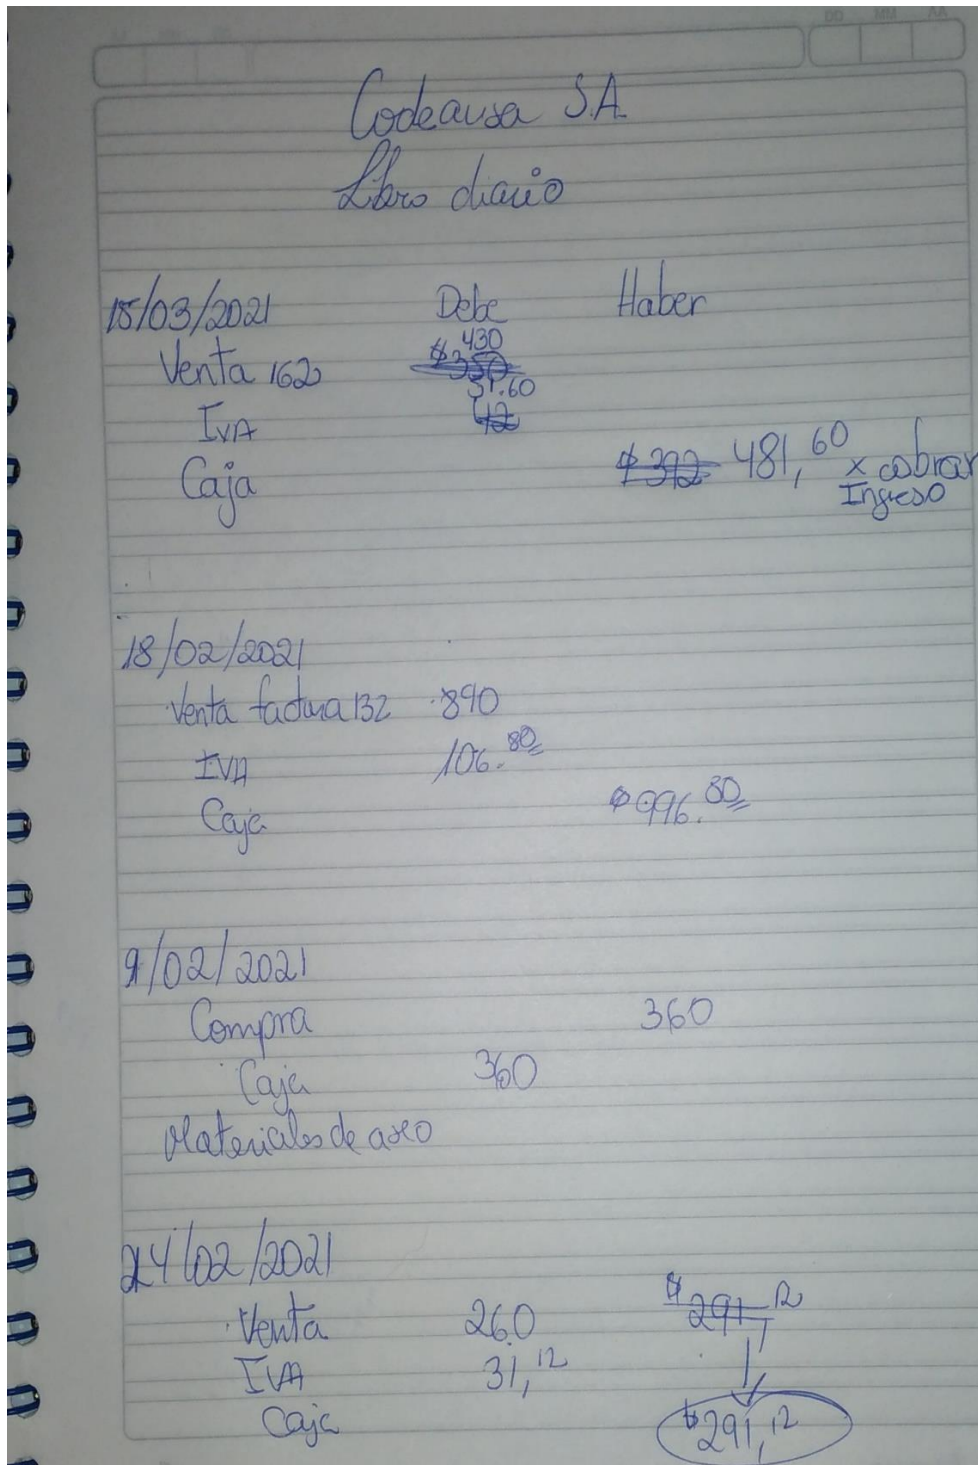 DD MM AA
Codeausa S.A.
Libro diario
15/03/2021 Debe Haber
430
Venta 162 $350
51.60
IVA 42
Caja $392 481,60 x cobrar
Ingreso
18/02/2021
Venta factura 132 890
IVA 106.80
Caja $996.80
9/02/2021
Compra 360
Caja 360
Materiales de aseo
24/02/2021
Venta 260 $291,12
IVA 31,12
Caja $291,12